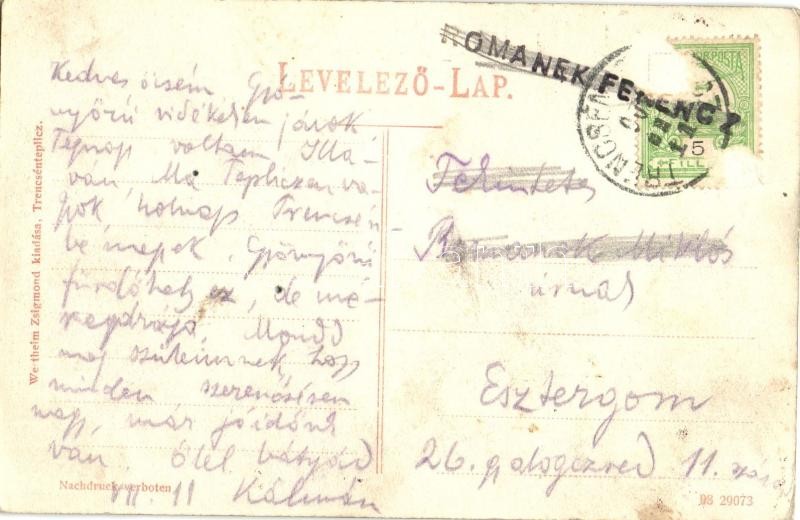 ROMANEK FERENCZ
LEVELEZŐ-LAP.
Kedves öcsém Gyö-
nyörű vidékeken járok
Tegnap voltam Illa-
ván, Ma Tepliczen va-
gyok, holnap Trencsén
be megyek. Gyönyörű
fürdőhely ez, de mé-
Mondd
meg szüleimnek hogy
minden szerencsésen
megy, már jó időnk
van. Ölel bátyád
VII. 11 Kálmán
Tekintetes
Romanek Miklós
úrnak
Esztergom
26. gyalogezred 11. száz
TRENCSÉN
5
FILL
Wertheim Zsigmond kiadása, Trencsénteplicz.
Nachdruck verboten
98 29073